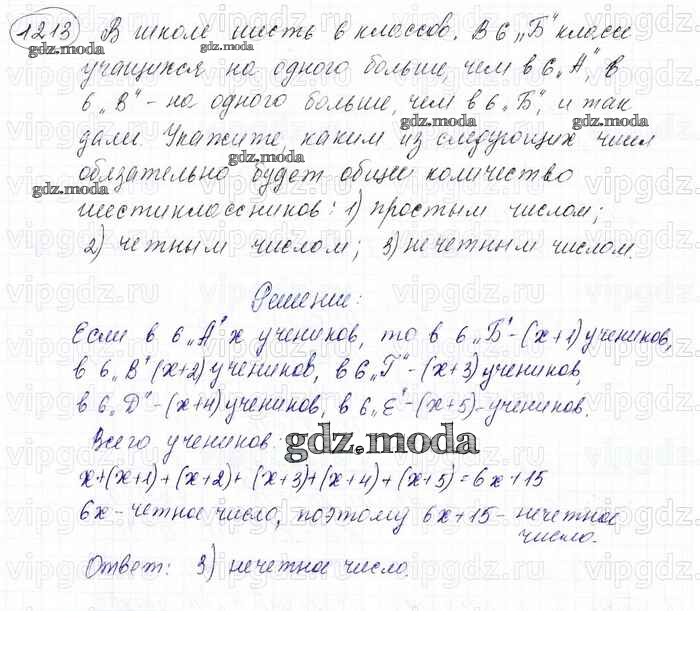 1213 В школе шесть 6 классов. В 6 „Б" классе
учащихся на одного больше, чем в 6 „А", в
6 „В" - на одного больше, чем в 6 „Б", и так
дали. Укажите, каким из следующих чисел
обязательно будет общее количество
шестиклассников: 1) простым числом;
2) четным числом; 3) нечетным числом.
Решение:
Если в 6 „А" x учеников, то в 6 „Б" - (x+1) учеников,
в 6 „В" (x+2) учеников, в 6 „Г" - (x+3) учеников,
в 6 „Д" - (x+4) учеников, в 6 „Е" - (x+5) - учеников.
Всего учеников:
gdz.moda
x+(x+1)+(x+2)+(x+3)+(x+4)+(x+5)=6x+15
6x - четное число, поэтому 6x+15 - нечетное
число.
Ответ: 3) нечетное число.